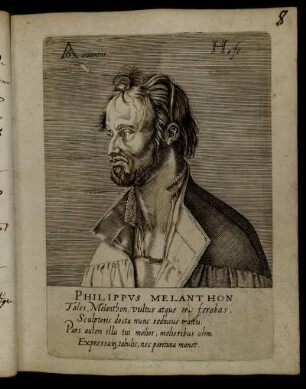 8
AD inuentor
H. fe.
PHILIPPVS MELANTHON.
Tales, Melanthon, vultus atque ora ferebas,
Sculptoris docta nunc rediuiue manu.
Pars autem illa tui melior, melioribus olim
Expressa in tabulis, nec peritura manet.